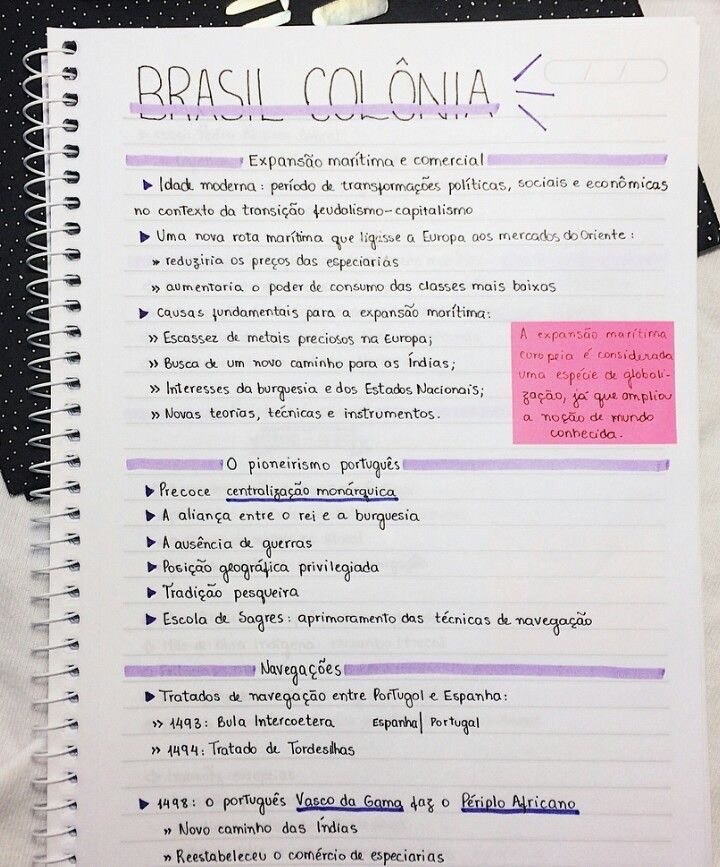 BRASIL COLÔNIA
Expansão marítima e comercial
▶ Idade moderna: período de transformações políticas, sociais e econômicas
no contexto da transição feudalismo-capitalismo
▶ Uma nova rota marítima que ligasse a Europa aos mercados do Oriente:
» reduziria os preços das especiarias
» aumentaria o poder de consumo das classes mais baixas
▶ Causas fundamentais para a expansão marítima:
» Escassez de metais preciosos na Europa;
» Busca de um novo caminho para as Índias;
» Interesses da burguesia e dos Estados Nacionais;
» Novas teorias, técnicas e instrumentos.
A expansão marítima
europeia é considerada
uma espécie de globali-
zação, já que ampliou
a noção de mundo
conhecida.
O pioneirismo português
▶ Precoce centralização monárquica
▶ A aliança entre o rei e a burguesia
▶ A ausência de guerras
▶ Posição geográfica privilegiada
▶ Tradição pesqueira
▶ Escola de Sagres: aprimoramento das técnicas de navegação
Navegações
▶ Tratados de navegação entre Portugal e Espanha:
» 1493: Bula Intercoetera Espanha | Portugal
» 1494: Tratado de Tordesilhas
▶ 1498: o português Vasco da Gama faz o Périplo Africano
» Novo caminho das Índias
» Reestabeleceu o comércio de especiarias